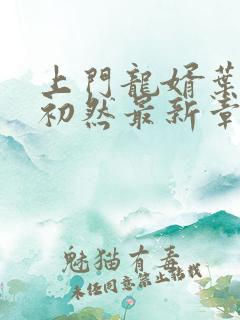 上門龍婿葉
初然最新章
魅猫有毒
未经同意禁止转载